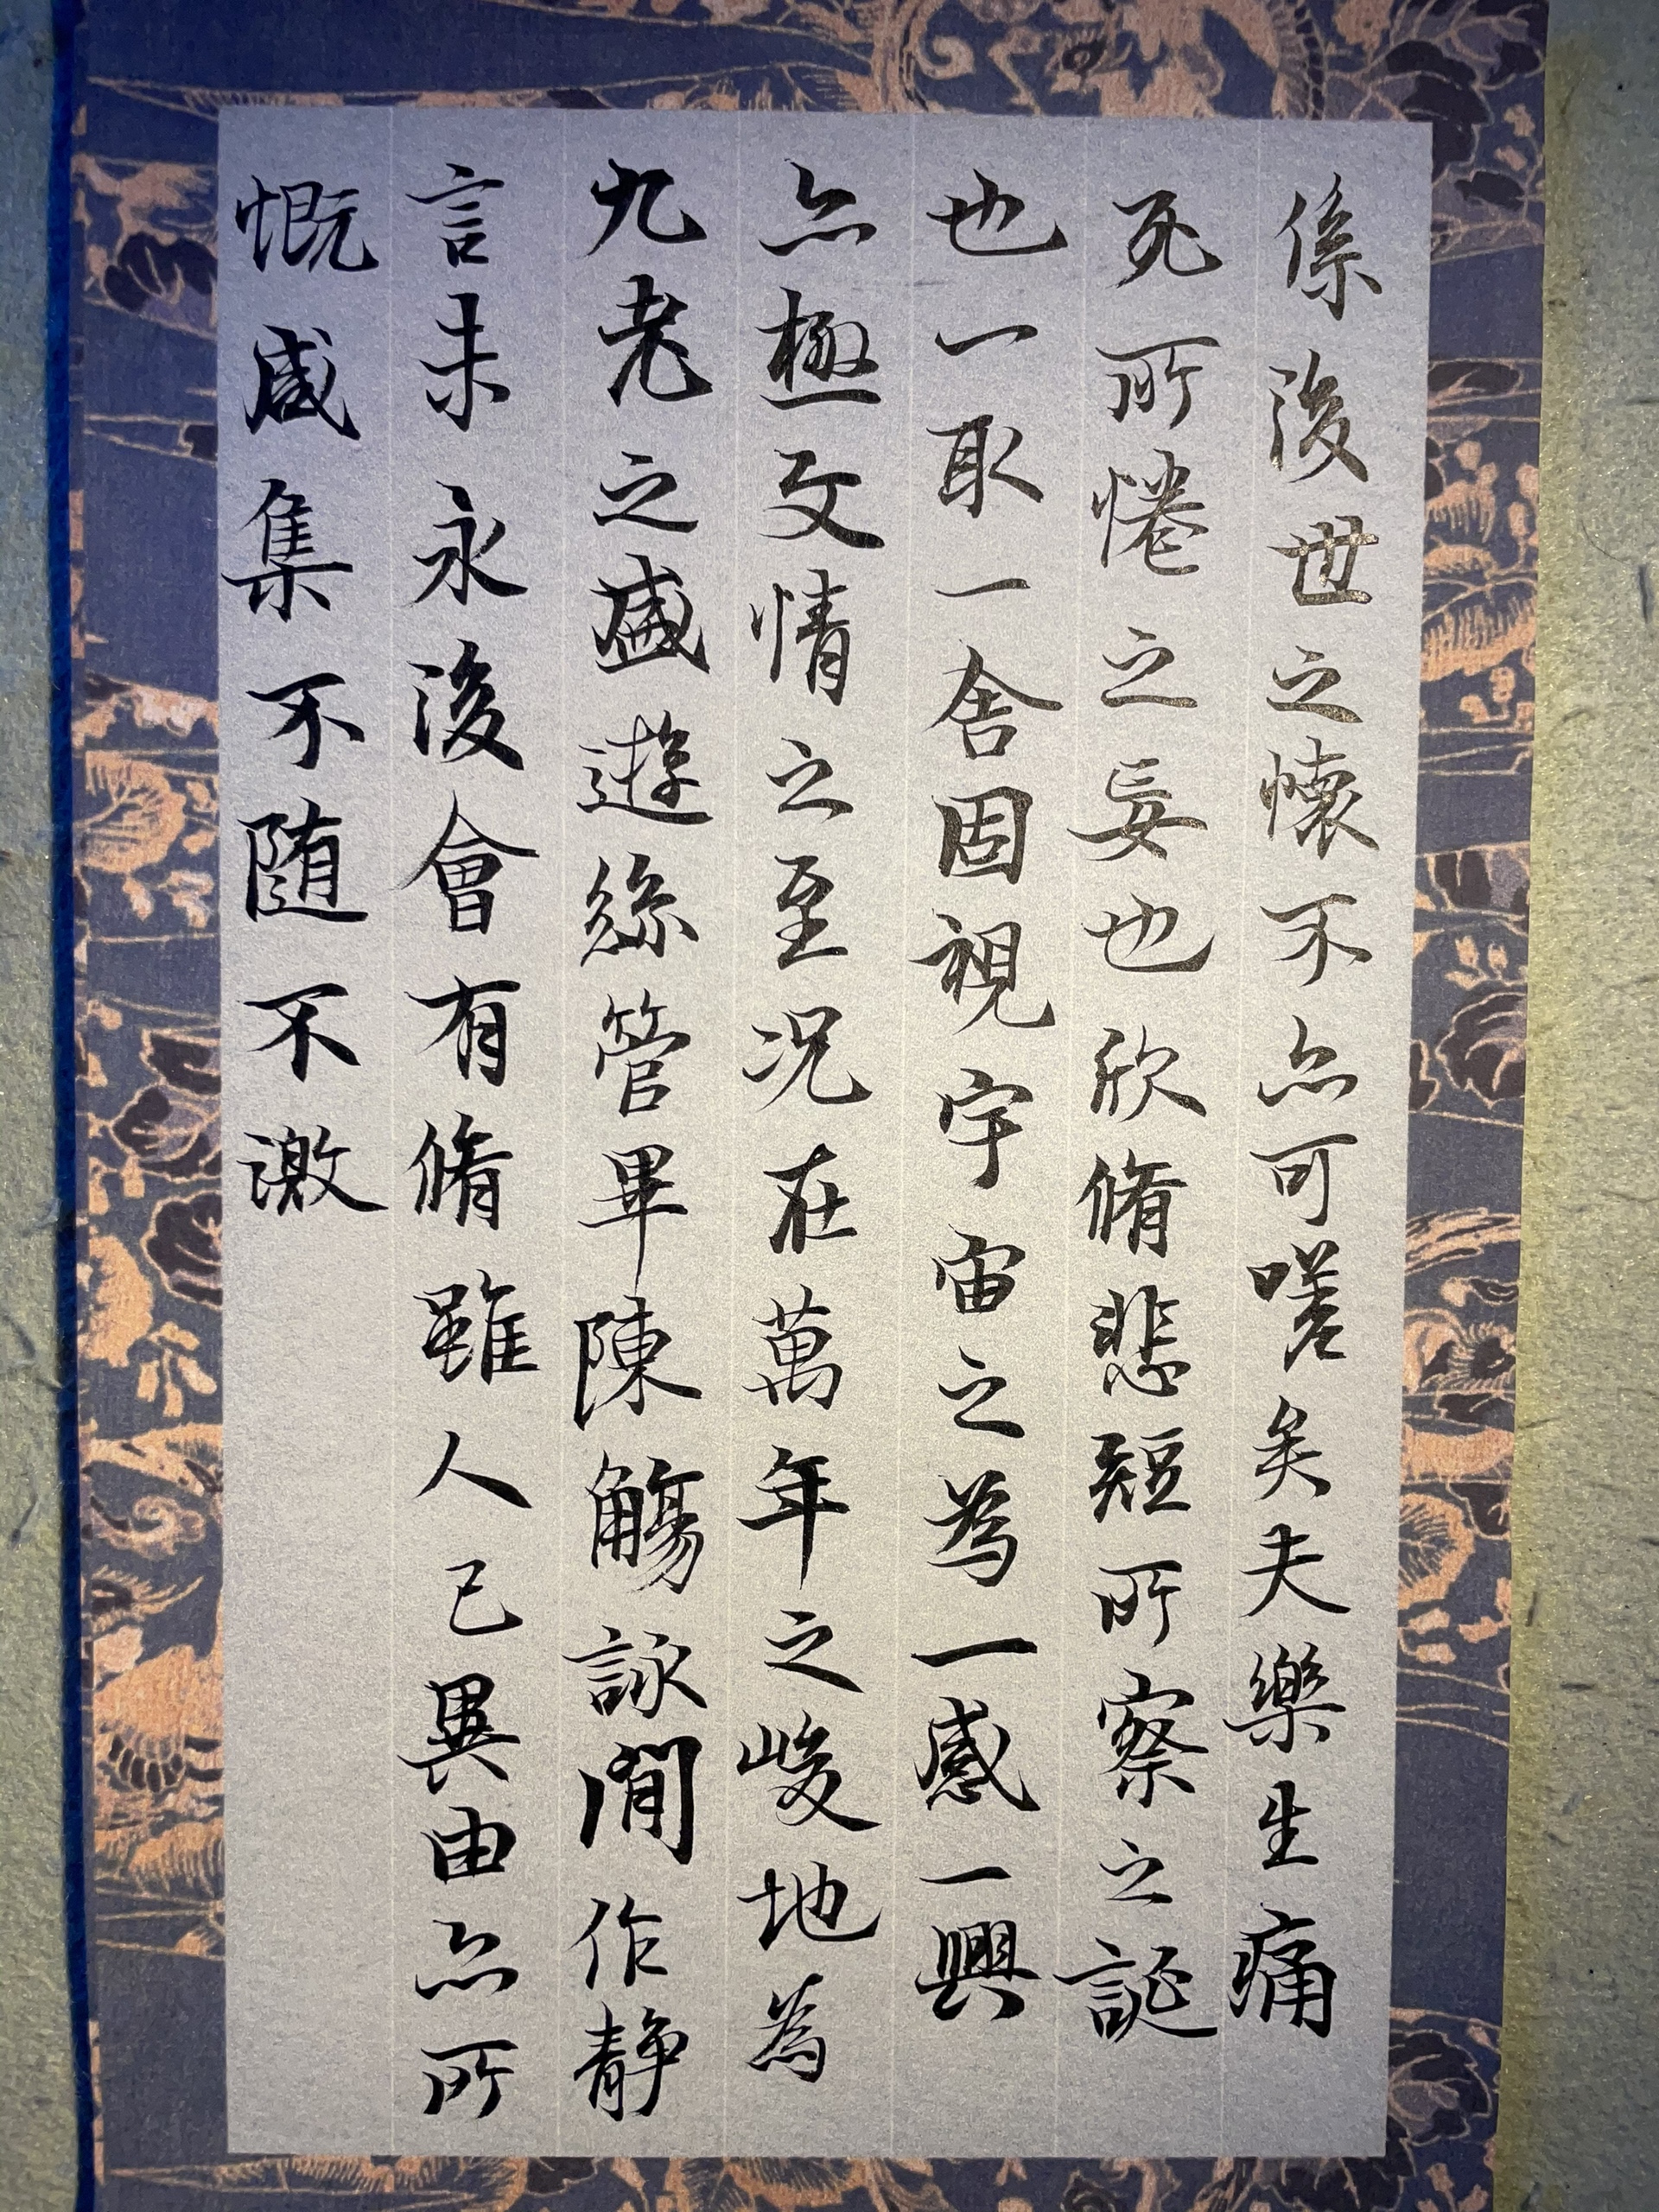 係後世之懐不亦可嗟矣夫樂生痛
死所惓之妄也欣脩悲短所察之誕
也一取一舎固視宇宙之為一感一興
亦極文情之至況在萬年之峻地為
九老之盛遊絲管畢陳觴詠間作静
言未永後會有脩雖人已異由亦所
慨感集不随不激